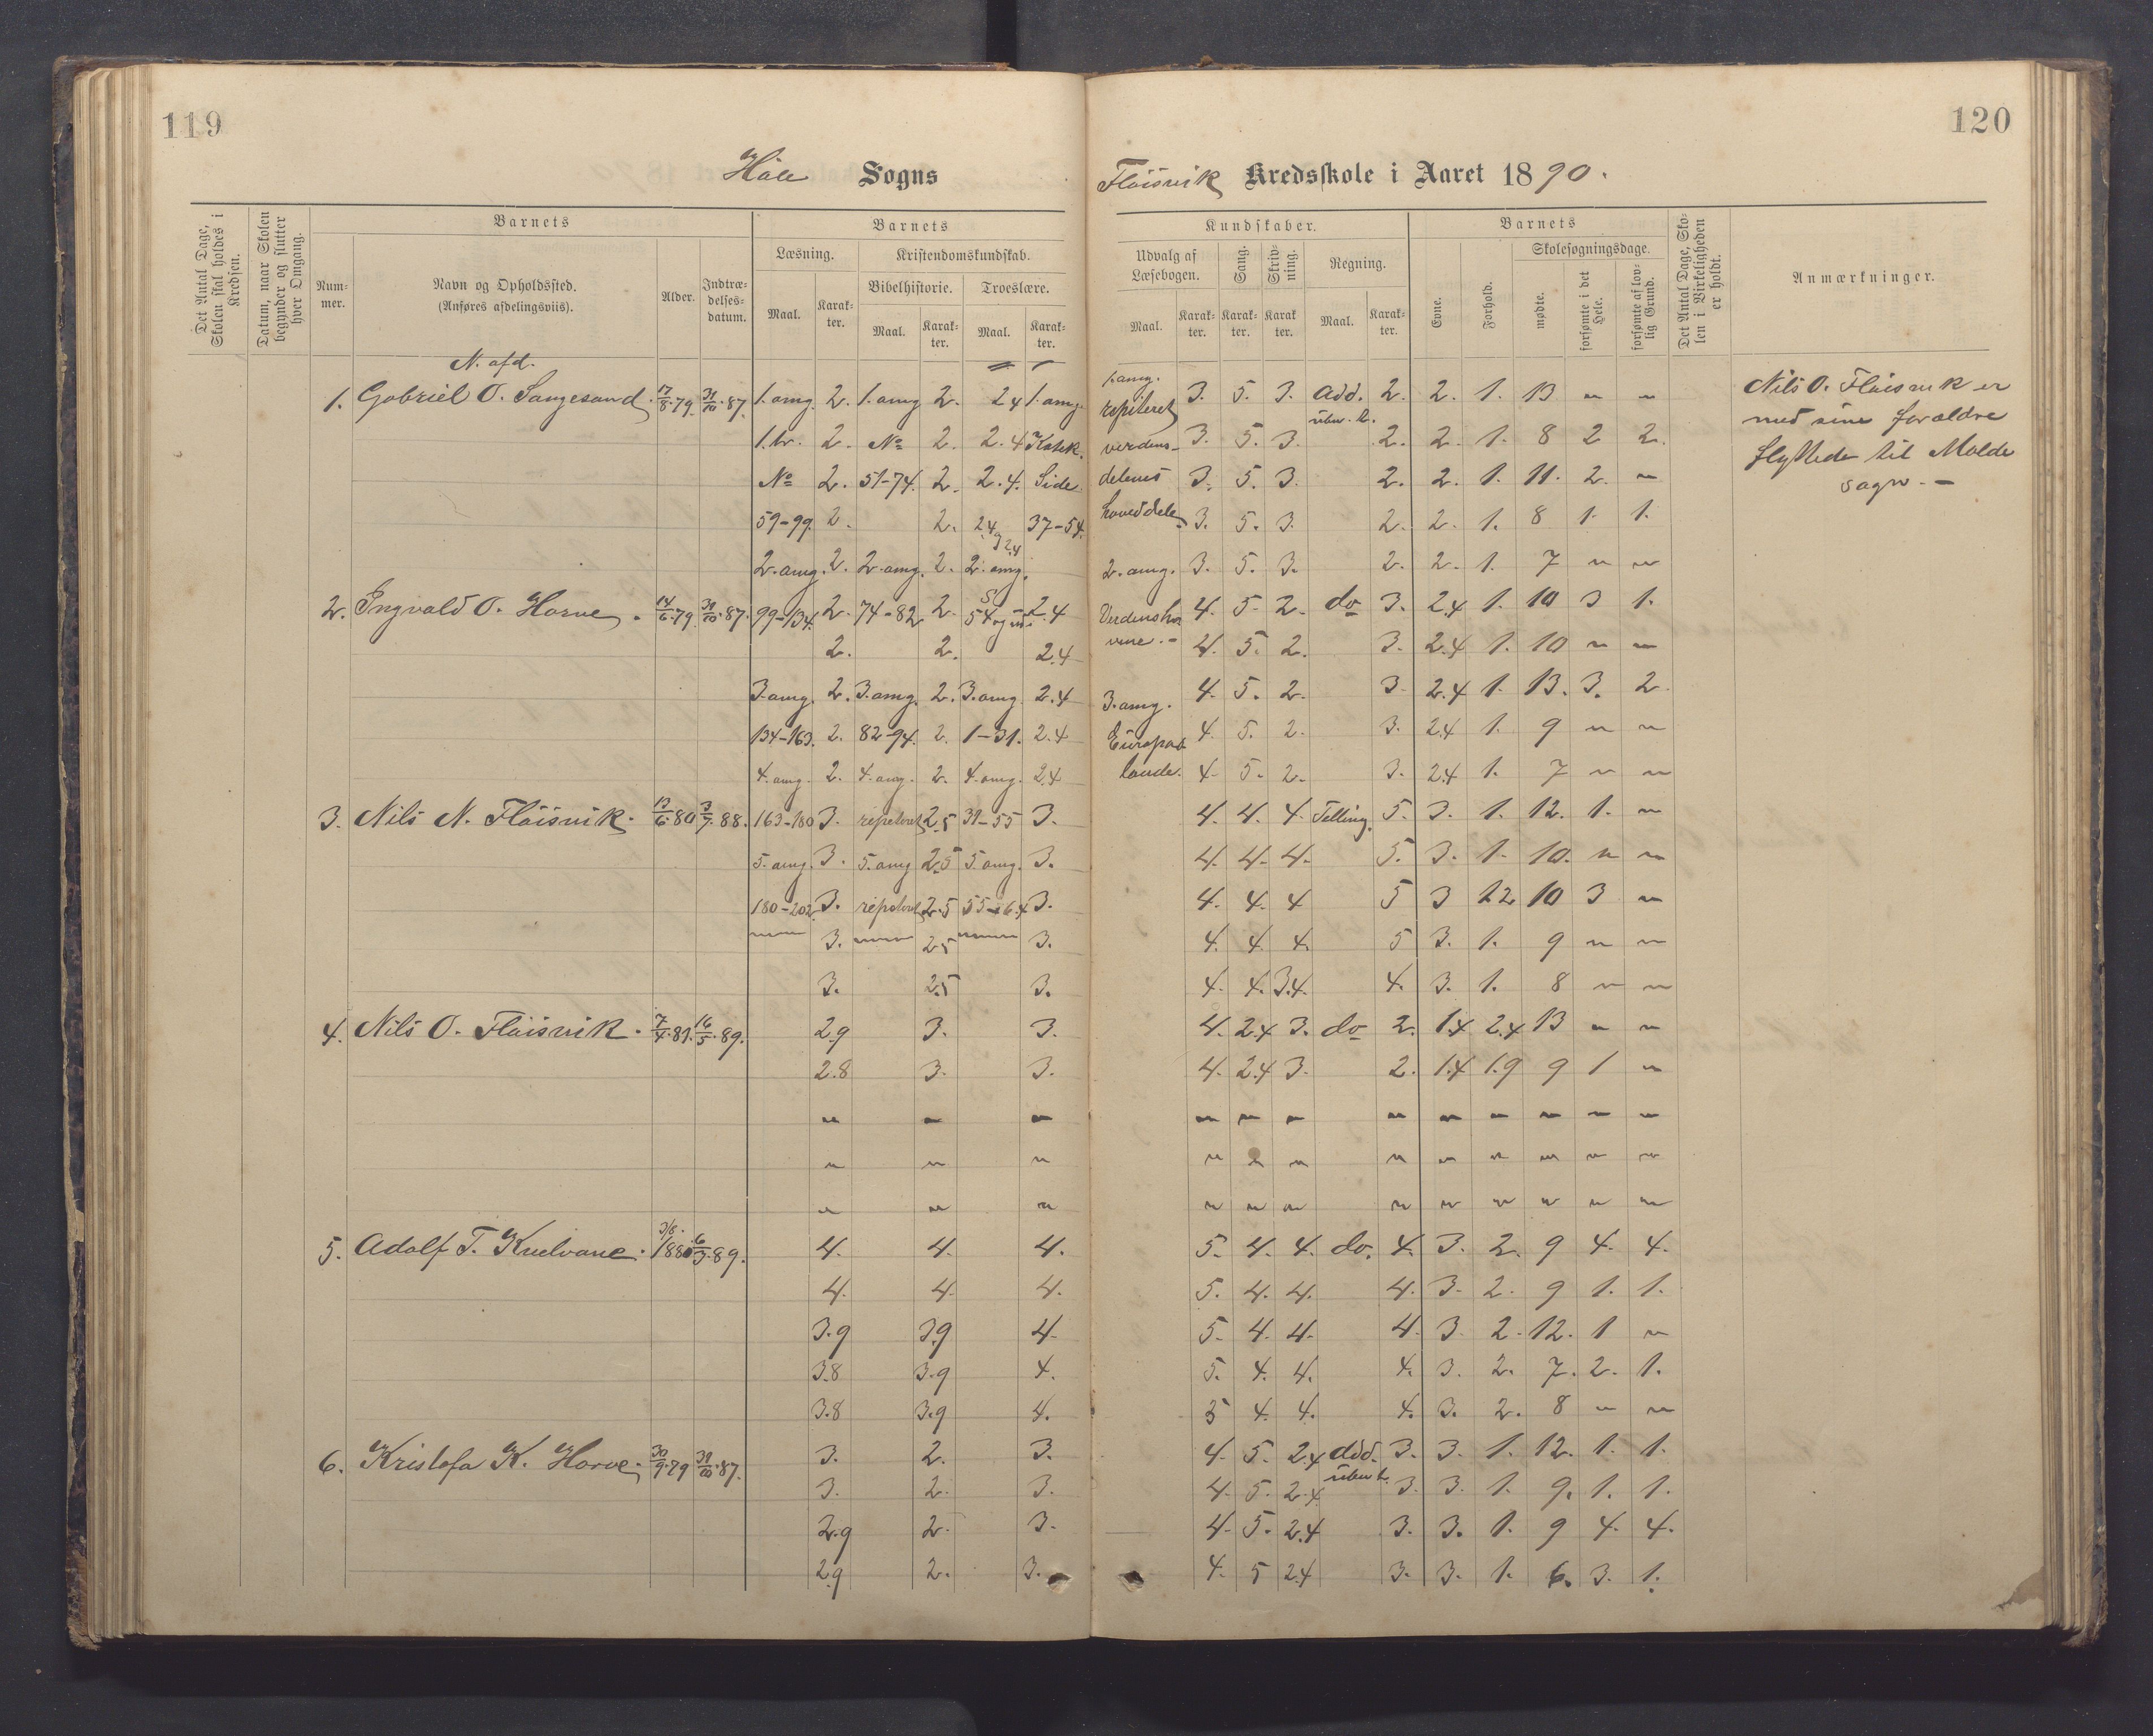 119
Høle Sogns
Det Antal Dage, Skolen skal holdes i Kredsen.
Datum, naar Skolen begynder og slutter hver Omgang.
Barnets
Nummer.
Navn og Opholdssted.
(Anføres afdelingsviis).
Alder.
Indtrædelsesdatum.
Barnets
Læsning.
Kristendomskundskab.
Bibelhistorie. Troeslære.
Maal. Karakter. Maal. Karakter. Maal. Karakter.
N. afd.
1. Gabriel O. Sangesand. 17/8.79. 31/10.87. 1. omg. 2. 1. omg 2. 2.4 1. omg.
1. br. 2. No 2. 2.4 Katek.
No 2. 51-74. 2. 2.4. Side
59-99. 2. 2. 2.4 37-54.
2. omg. 2. 2. omg. 2. 2. omg. 2.4
2. Ingvald O. Horve. 14/6.79. 31/10.87. 99-134. 2. 74-82 2. 54 2.4
2. 2. 2.4
3. omg. 2. 3. omg. 2. 3. omg. 2.4
134-163. 2. 82-94. 2. 1-31. 2.4
4. omg. 2. 4. omg. 2. 4. omg. 2.4
3. Nils N. Fløisvik. 13/6.80 3/7.88. 163-180 3. repeteret 2.5 31-55 3.
5. omg. 3. 5. omg 2.5 5. omg. 3.
180-202 3. repeteret 2.5 55-64 3.
3. 2.5 3.
3. 2.5 3.
4. Nils O. Fløisvik. 7/4.81. 16/5.89. 2.9 3. 3.
2.8 3. 3.
" " "
" " "
" " "
5. Adolf T. Knelvane. 3/8. 1880 6/3.89. 4. 4. 4.
4. 4. 4.
3.9 3.9 4.
3.8 3.9 4.
3.8 3.9 4.
6. Kristofa K. Horve. 30/9.79 31/10.87. 3. 2. 3.
3. 2. 3.
2.9 2. 3.
2.9 2. 3.
120
Fløisvik Kredsskole i Aaret 1890.
Kundskaber.
Udvalg af Læsebogen.
Sang.
Skrivning.
Regning.
Maal. Karakter. Karakter. Karakter. Maal. Karakter.
Barnets
Evne.
Forhold.
Skolesøgningsdage.
mødte.
forsømte i det Hele.
forsømte af lovlig Grund.
Det Antal Dage, Skolen i Virkeligheden er holdt.
Anmærkninger.
1. omg.
repeteret 3. 5. 3. Add. 2. 2. 1. 13 " "
uben. t.
verdens- 3. 5. 3. 2. 2. 1. 8 2 2.
delenes 3. 5. 3. 2. 2. 1. 11. 2. "
hoveddele 3. 5. 3. 2. 2. 1. 8 1. 1.
2. omg. 3. 5. 3. 2. 2. 1. 7 " "
Verdensha 4. 5. 2. do 3. 2.4 1. 10 3 1.
vene. 4. 5. 2. 3. 2.4 1. 10 " "
3. omg. 4. 5. 2. 3. 2.4 1. 13. 3. 2
Europas 4. 5. 2. 3. 2.4 1. 9 " "
lande. 4. 5. 2. 3. 2.4 1. 7 " "
4. 4. 4. Telling. 5. 3. 1. 12. 1. "
4. 4. 4. 5. 3. 1. 10. " "
4. 4. 4 5 3 1.2 10 3 "
4. 4. 4. 5 3. 1. 9 " "
4. 4. 3.4. 4. 3. 1. 8 " "
4. 2.4 3. do 2. 1.4 2.4 13 " "
4. 2.4 3. 2. 1.4 1.9 9 1 "
" " " " " " " " "
" " " " " " " " "
" " " " " " " " "
5. 4. 4. do. 4. 3. 2. 9 4. 4.
5. 4. 4. 4. 3. 2. 9 1. 1.
5. 4. 4. 4. 3. 2. 12. 1 "
5. 4. 4. 4. 3. 2. 7. 2. 1.
5 4. 4. 4. 3. 2. 8 " "
4. 5. 2.4 Add. 3. 3. 1. 12. 1. 1.
uben t.
4. 5. 2.4 3. 3. 1. 9. 1. 1.
4. 5. 2.4 3. 3. 1. 9 4. 4.
4. 5 2.4 3. 3. 1. 6. 3. 1.
Nils O. Fløisvik er
med sine forældre
flyttede til Molde
sogn. -